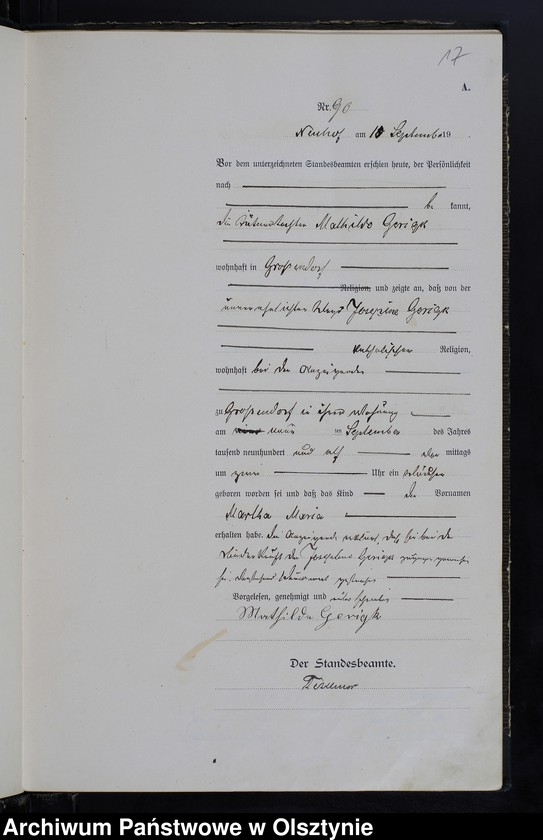 17
A.
Nr. 90
Neuhof, am 10 September 19
Vor dem unterzeichneten Standesbeamten erschien heute, der Persönlichkeit
nach
be kannt,
die Mathilde Gerigk
wohnhaft in Großendorf
Religion, und zeigte an, daß von der
unverehelichten Josefine Gerigk
katholischer Religion,
wohnhaft bei der Anzeigenden
zu Großendorf in ihrer Wohnung
am neun ten September des Jahres
tausend neunhundert und elf mittags
um zwei Uhr ein Mädchen
geboren worden sei und daß das Kind die Vornamen
Martha Maria
erhalten habe. Die Anzeigende erklärt, daß sie bei der
Niederkunft der Josefine Gerigk zugegen gewesen
sei. gestrichen
Vorgelesen, genehmigt und unterschrieben
Mathilde Gerigk
Der Standesbeamte.
Archiwum Państwowe w Olsztynie